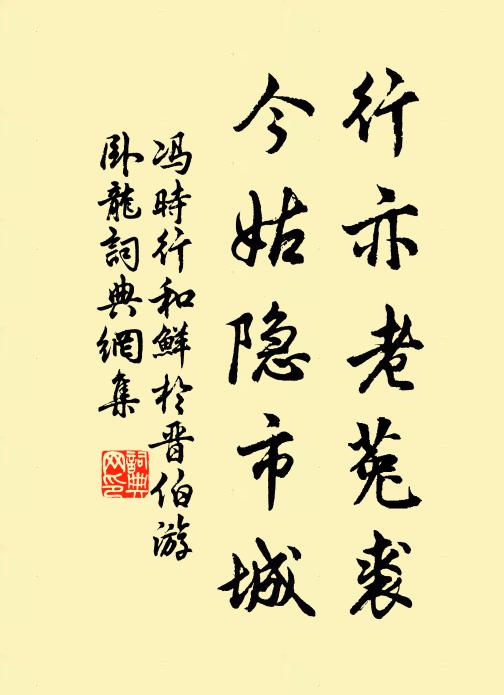 行亦老菟裘
今姑隐市城
冯時行和鮮於晋伯游
卧龍詞典網集
詞典网印